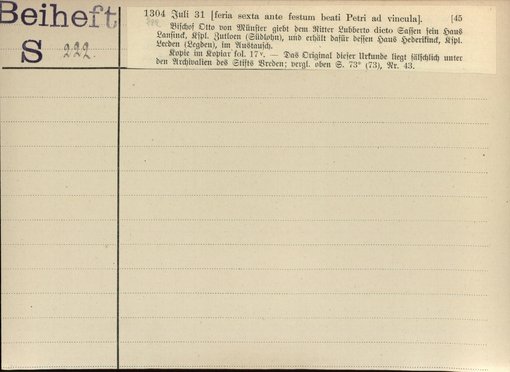 Beiheft
S 222
1304 Juli 31 [feria sexta ante festum beati Petri ad vincula]. [45
Bischof Otto von Münster giebt dem Ritter Lubberto dicto Sassen sein Haus
Lansinck, Kspl. Zutloen (Südlohn), und erhält dafür dessen Haus Hederikinck, Kspl.
Lecden (Legden), im Austausch.
Kopie im Kopiar fol. 17ᵛ. — Das Original dieser Urkunde liegt fälschlich unter
den Archivalien des Stifts Vreden; vergl. oben S. 73* (73), Nr. 43.